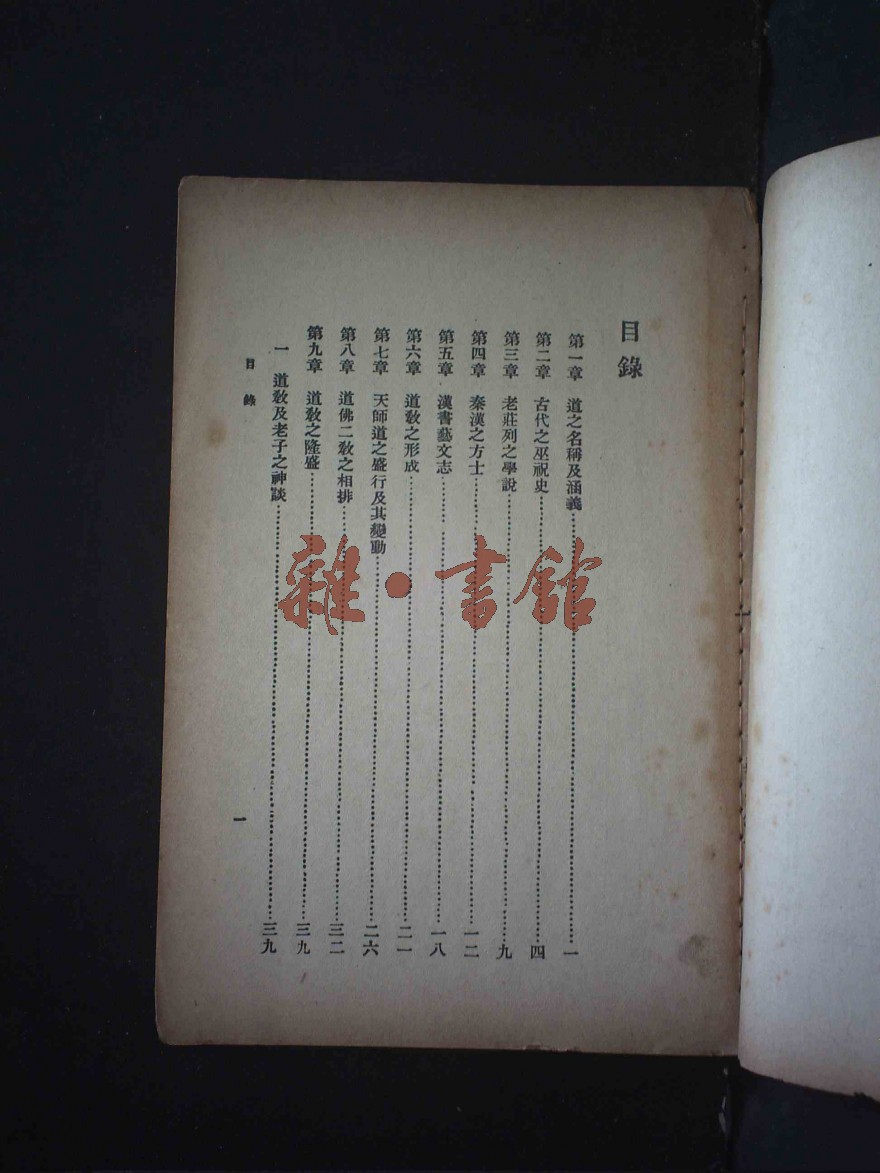 目錄
第一章　道之名稱及涵義……一
第二章　古代之巫祝史……四
第三章　老莊列之學說……九
第四章　秦漢之方士……一二
第五章　漢書藝文志……一八
第六章　道教之形成……二一
第七章　天師道之盛行及其變動……二六
第八章　道佛二教之相排……三二
第九章　道教之隆盛……三九
一　道教及老子之神談……三九
目錄
一
雜·書館